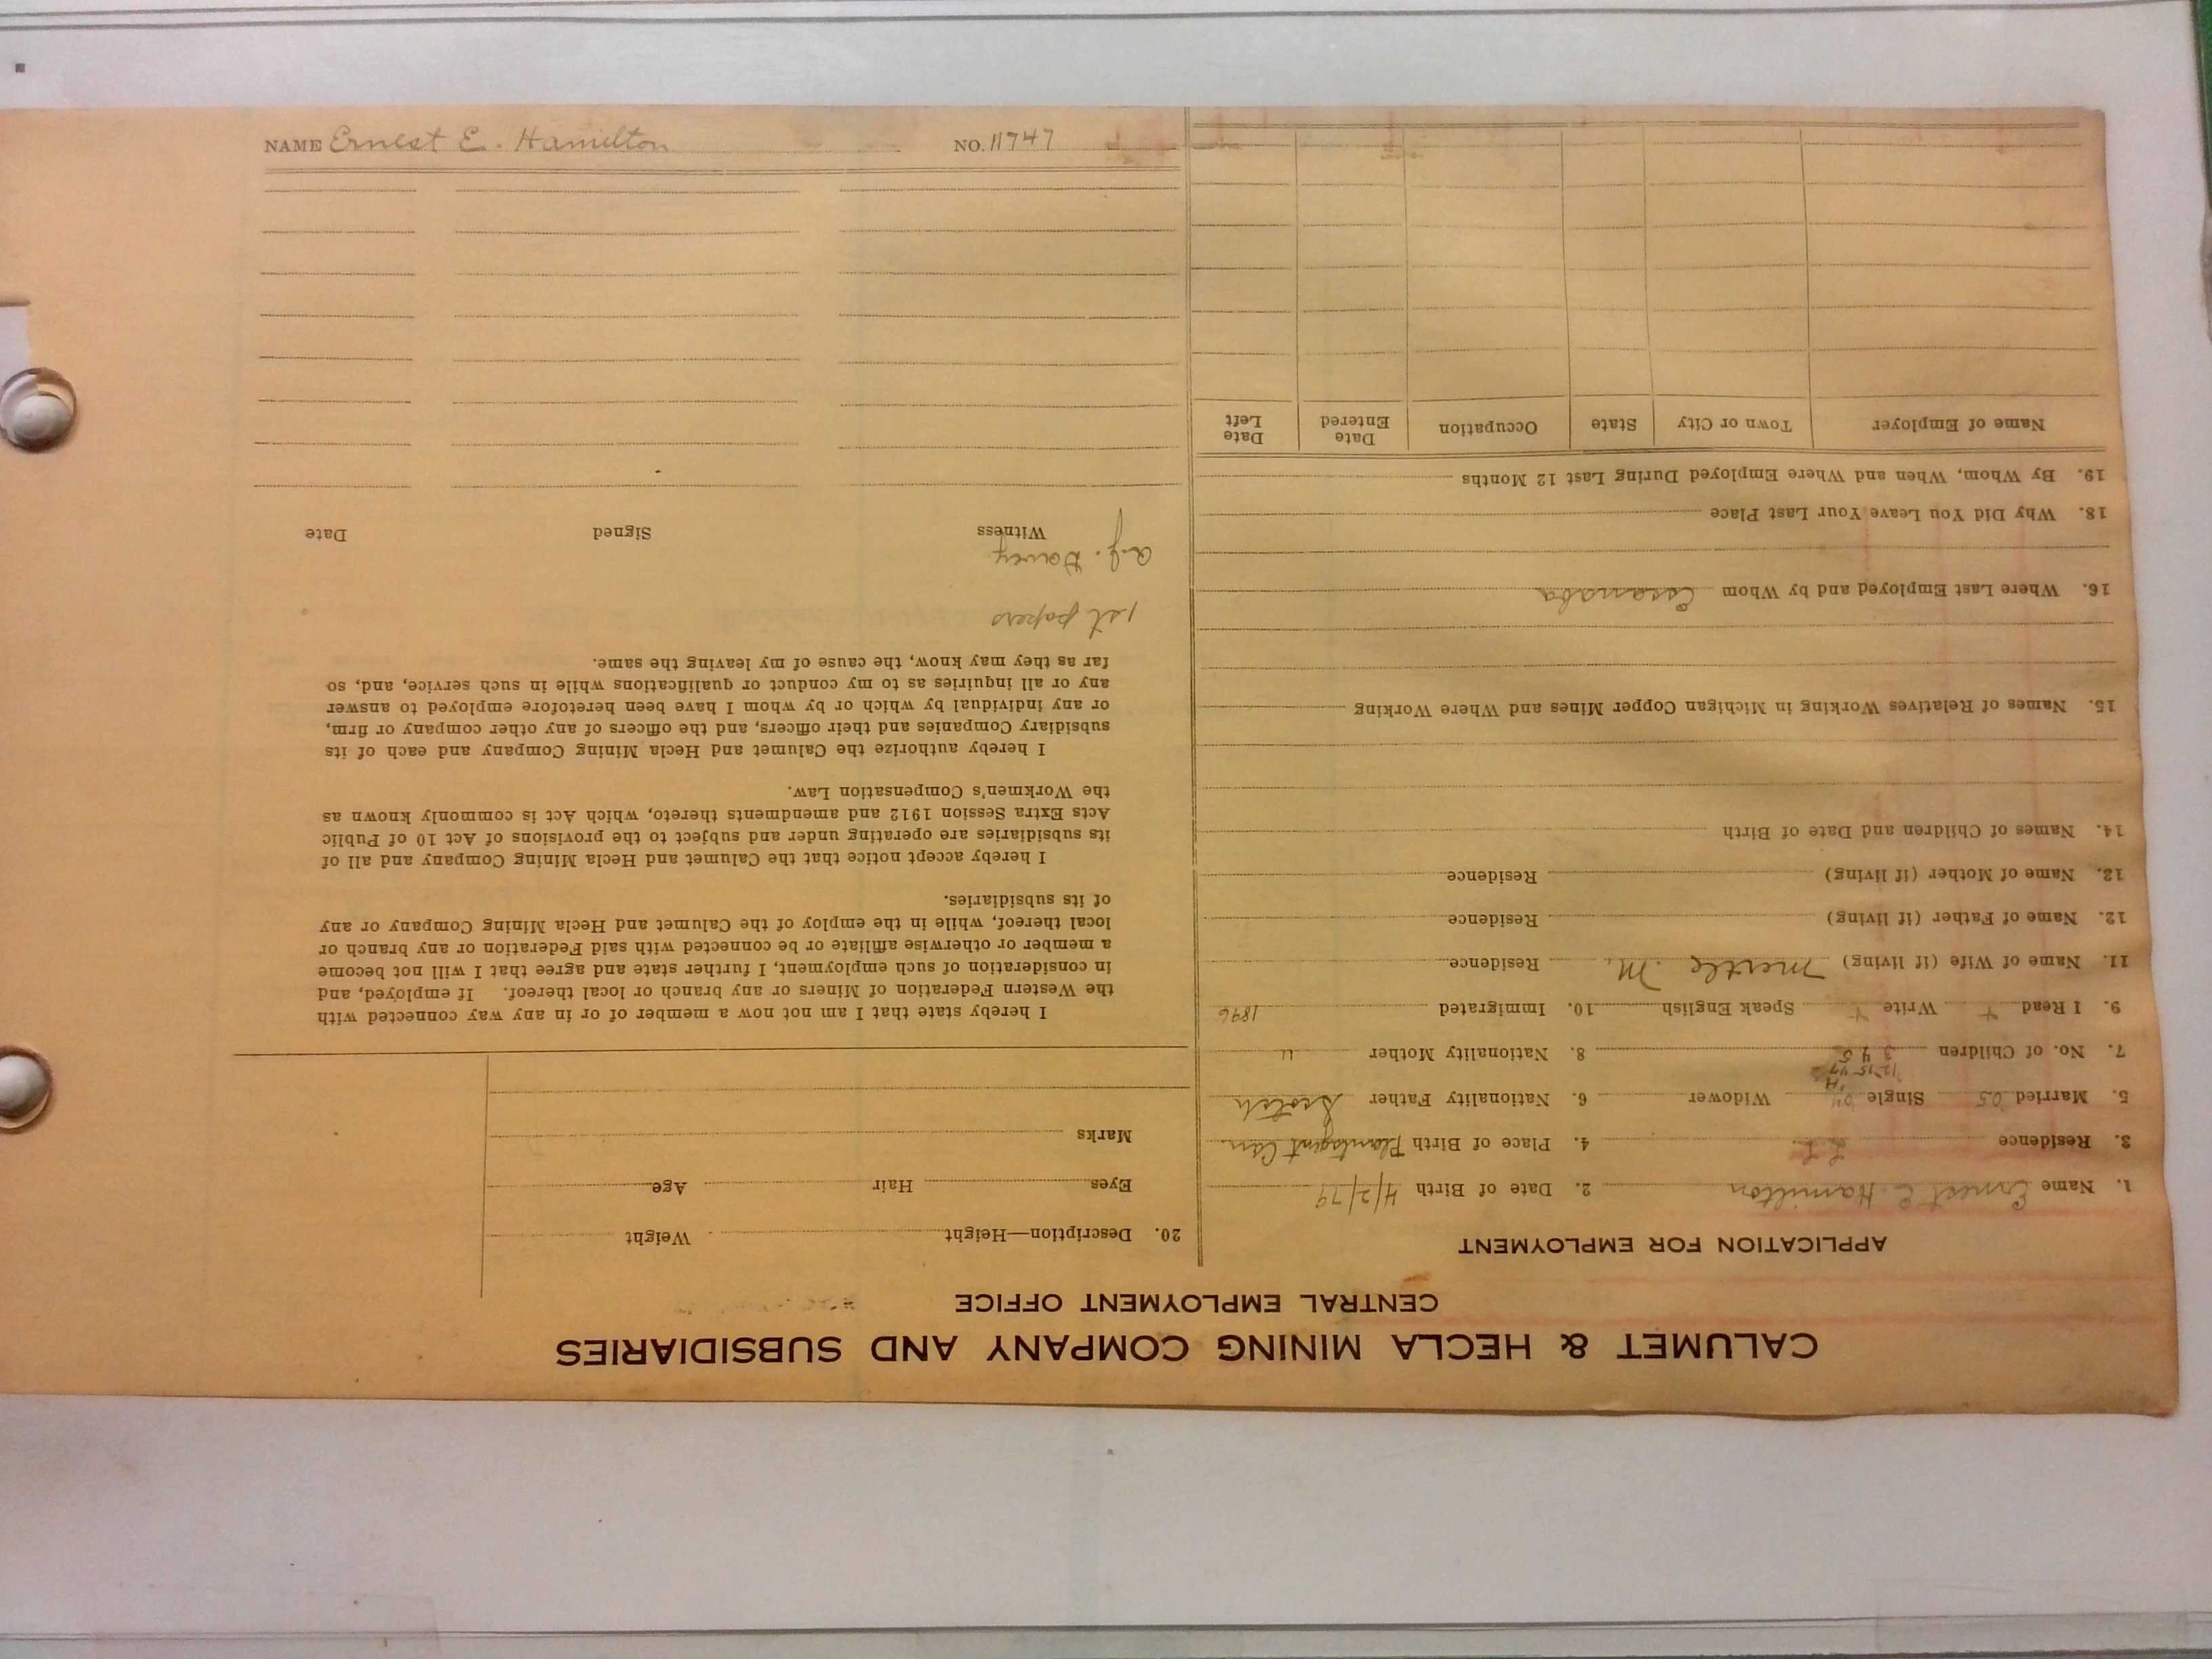 CALUMET & HECLA MINING COMPANY AND SUBSIDIARIES
CENTRAL EMPLOYMENT OFFICE
APPLICATION FOR EMPLOYMENT
1. Name Ernest E. Hamilton 2. Date of Birth 4/2/79
3. Residence 4. Place of Birth Plantagent Can.
5. Married 05 Single Widower 6. Nationality Father Scotch
7. No. of Children 3 4 5 8. Nationality Mother "
9. I Read + Write + Speak English 10. Immigrated 1896
11. Name of Wife (if living) Mertle M. Residence
12. Name of Father (if living) Residence
13. Name of Mother (if living) Residence
14. Names of Children and Date of Birth
15. Names of Relatives Working in Michigan Copper Mines and Where Working
16. Where Last Employed and by Whom Escanaba
18. Why Did You Leave Your Last Place
19. By Whom, When and Where Employed During Last 12 Months
Name of Employer Town or City State Occupation Date Entered Date Left
20. Description—Height Weight
Eyes Hair Age
Marks
I hereby state that I am not now a member of or in any way connected with
the Western Federation of Miners or any branch or local thereof. If employed, and
in consideration of such employment, I further state and agree that I will not become
a member or otherwise affiliate or be connected with said Federation or any branch or
local thereof, while in the employ of the Calumet and Hecla Mining Company or any
of its subsidiaries.
I hereby accept notice that the Calumet and Hecla Mining Company and all of
its subsidiaries are operating under and subject to the provisions of Act 10 of Public
Acts Extra Session 1912 and amendments thereto, which Act is commonly known as
the Workmen's Compensation Law.
I hereby authorize the Calumet and Hecla Mining Company and each of its
subsidiary Companies and their officers, and the officers of any other company or firm,
or any individual by which or by whom I have been heretofore employed to answer
any or all inquiries as to my conduct or qualifications while in such service, and, so
far as they may know, the cause of my leaving the same.
1st papers
A.J. Davey
Witness Signed Date
NAME Ernest E. Hamilton NO. 11747